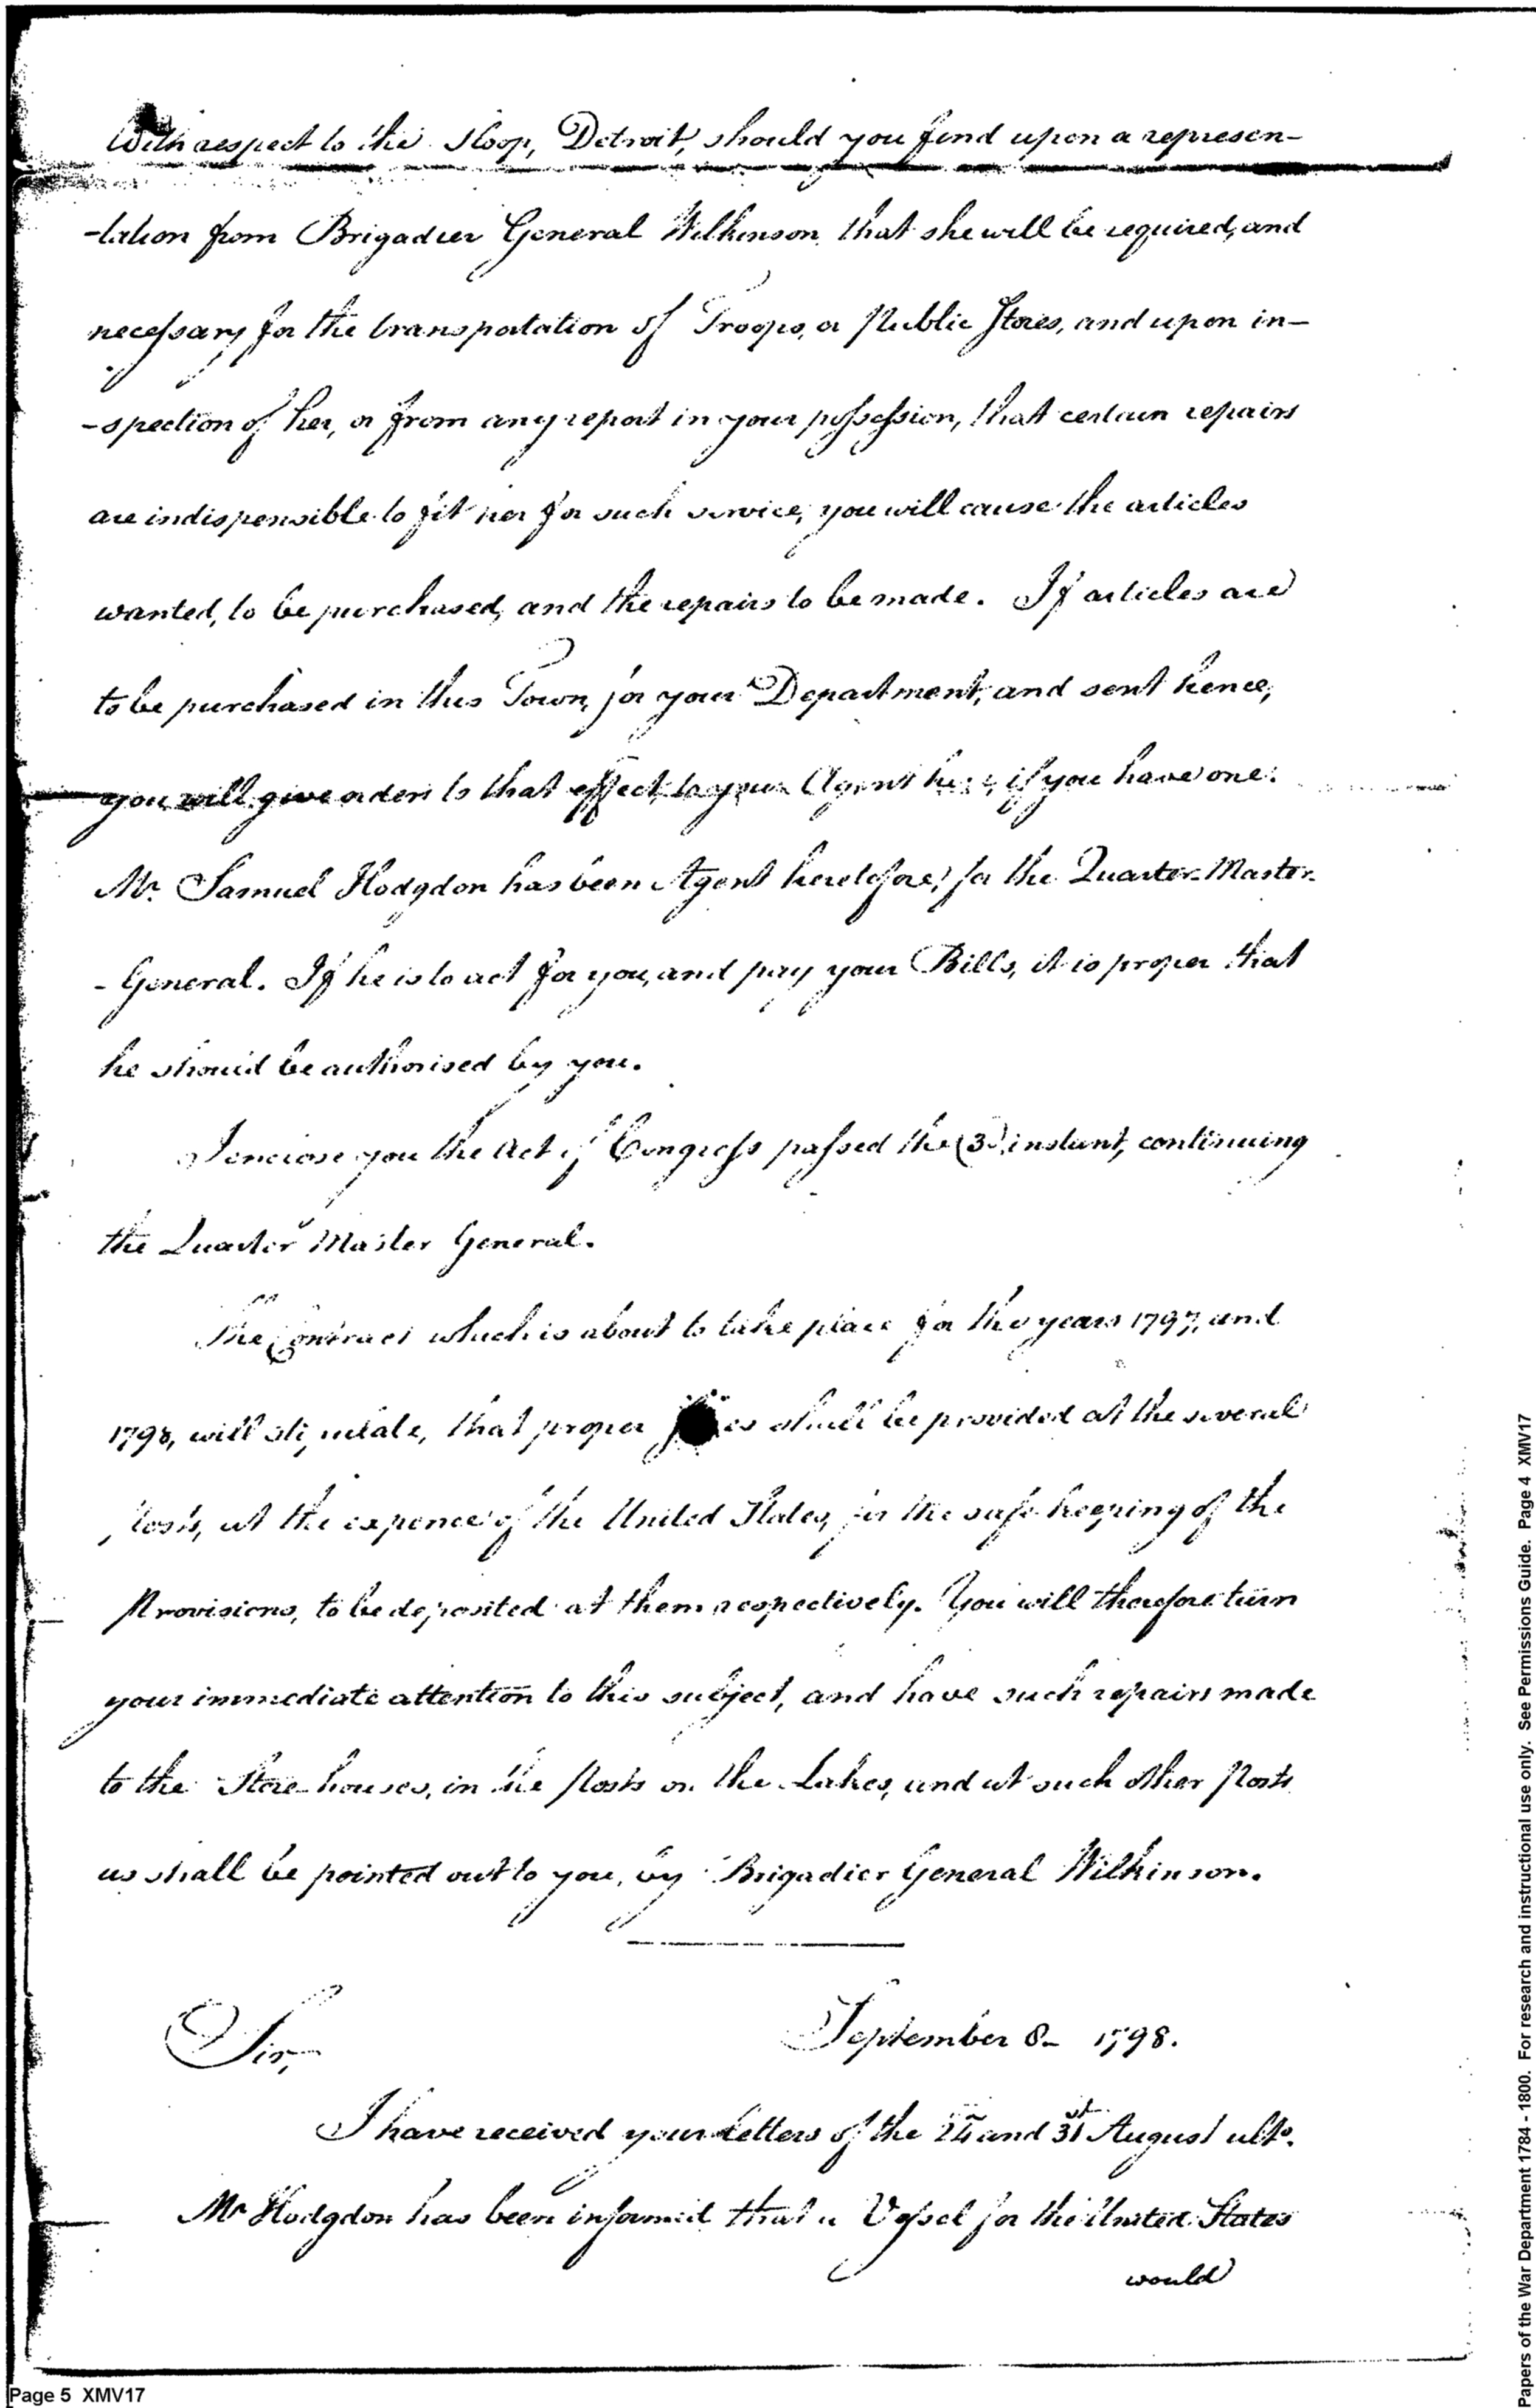 With respect to the Sloop, Detroit, should you find upon a represen-
-tation from Brigadier General Wilkinson, that she will be required, and
necessary for the transportation of Troops, or Public Stores, and upon in-
-spection of her, or from any report in your possession, that certain repairs
are indispensible to fit her for such service, you will cause the articles
wanted, to be purchased, and the repairs to be made. If articles are
to be purchased in this Town, for your Department, and sent hence,
you will give orders to that effect, to your Agent here, if you have one.
Mr. Samuel Hodgdon has been Agent heretofore, for the Quarter-Master-
-General. If he is to act for you, and pay your Bills, it is proper that
he should be authorised by you.
I enclose you the Act of Congress passed the instant, continuing
the Quarter Master General.
The Contract which is about to take place for the years 1797, and
1798, will stipulate, that proper shall be provided at the several
Posts, at the expence of the United States, for the safe keeping of the
Provisions, to be deposited at them respectively. You will therefore turn
your immediate attention to this subject, and have such repairs made
to the Store-houses, in the Posts on the Lakes, and at such other Posts
as shall be pointed out to you, by Brigadier General Wilkinson.
Sir, September 8- 1798.
I have received your Letters of the 24 and 31st August ulto.
Mr Hodgdon has been informed that a Vessel for the United States
would
Page 5 XMV17
Papers of the War Department 1784 - 1800. For research and instructional use only. See Permissions Guide. Page 4 XMV17